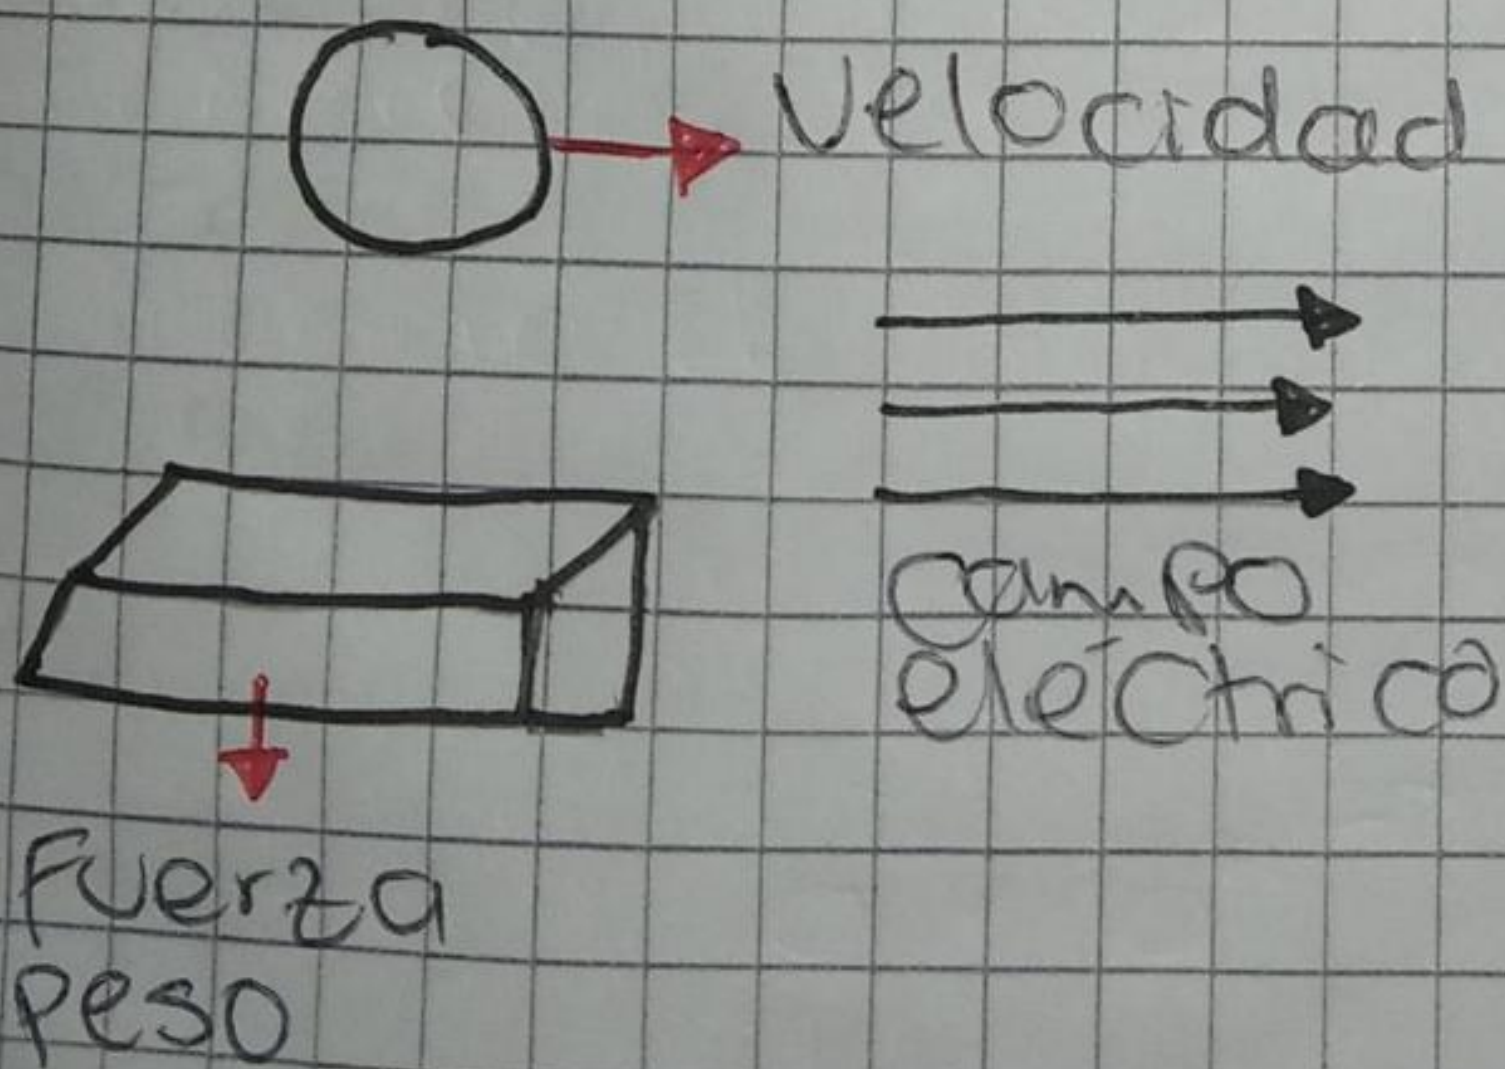 Velocidad
campo
eléctrico
Fuerza
peso